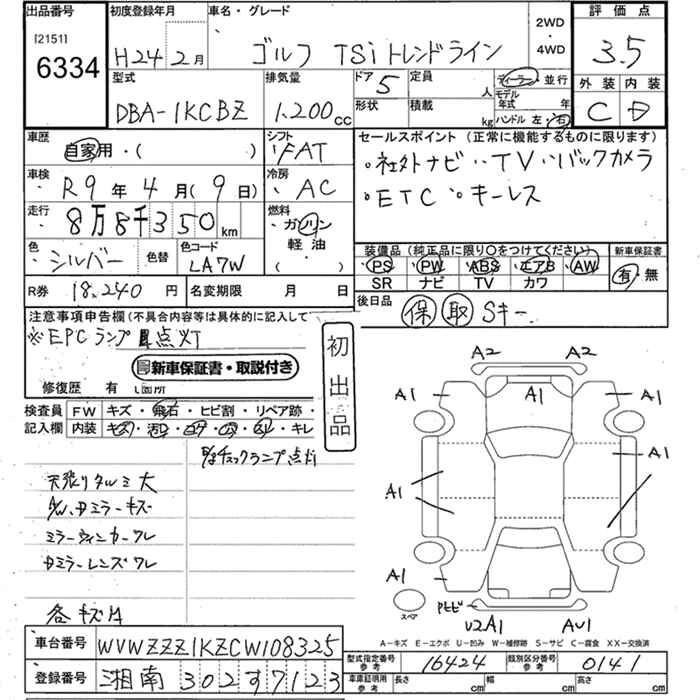 出品番号 初度登録年月 車名・グレード 2WD ・ 4WD 評価点
[2151]
6334
H24年2月 ゴルフ TSiトレンドライン 3.5
型式 排気量 ドア 5 定員 人 ディーラー・並行
モデル年式 年
DBA-1KCBZ 1.200cc 形状 積載 kg ハンドル 左・右
外装 内装
C D
車歴 自家用・( ) シフト FAT
セールスポイント(正常に機能するものに限ります)
・社外ナビ・TV・バックカメラ
・ETC ・キーレス
車検 R9年4月(9日) 冷房 AC
走行 8万8千350km 燃料 ガソリン 軽油 ( )
色 シルバー 色替 色コード LA7W
装備品(純正品に限り○をつけてください) 新車保証書
PS PW ABS エアB AW 有・無
SR ナビ TV カワ
R券 18.240円 名変期限 月 日
後日品 保 取 Sキー
注意事項申告欄(不具合内容等は具体的に記入して
※EPCランプ 点灯
新車保証書・取説付き
修復歴 有 (箇所
初出品
検査員記入欄 FW キズ・飛石・ヒビ割・リペア跡・
内装 キズ・汚レ・コゲ・穴・スレ・キレ
チェックランプ点灯
天張りタルミ大
ミラーキズ
ミラーウィンカーワレ
ミラーレンズワレ
各キズ
A2 A2
A1 A1 A1
A1 A1
A1
スペア
U2A1 AU1
A=キズ E=エクボ U=凹み W=補修跡 S=サビ C=腐食 XX=交換済
車台番号 WVWZZZ1KZCW108325
登録番号 湘南 302 す 7123
型式指定番号参考 16424 類別区分番号参考 0141
車庫証明用参考 長さ cm 幅 cm 高さ cm